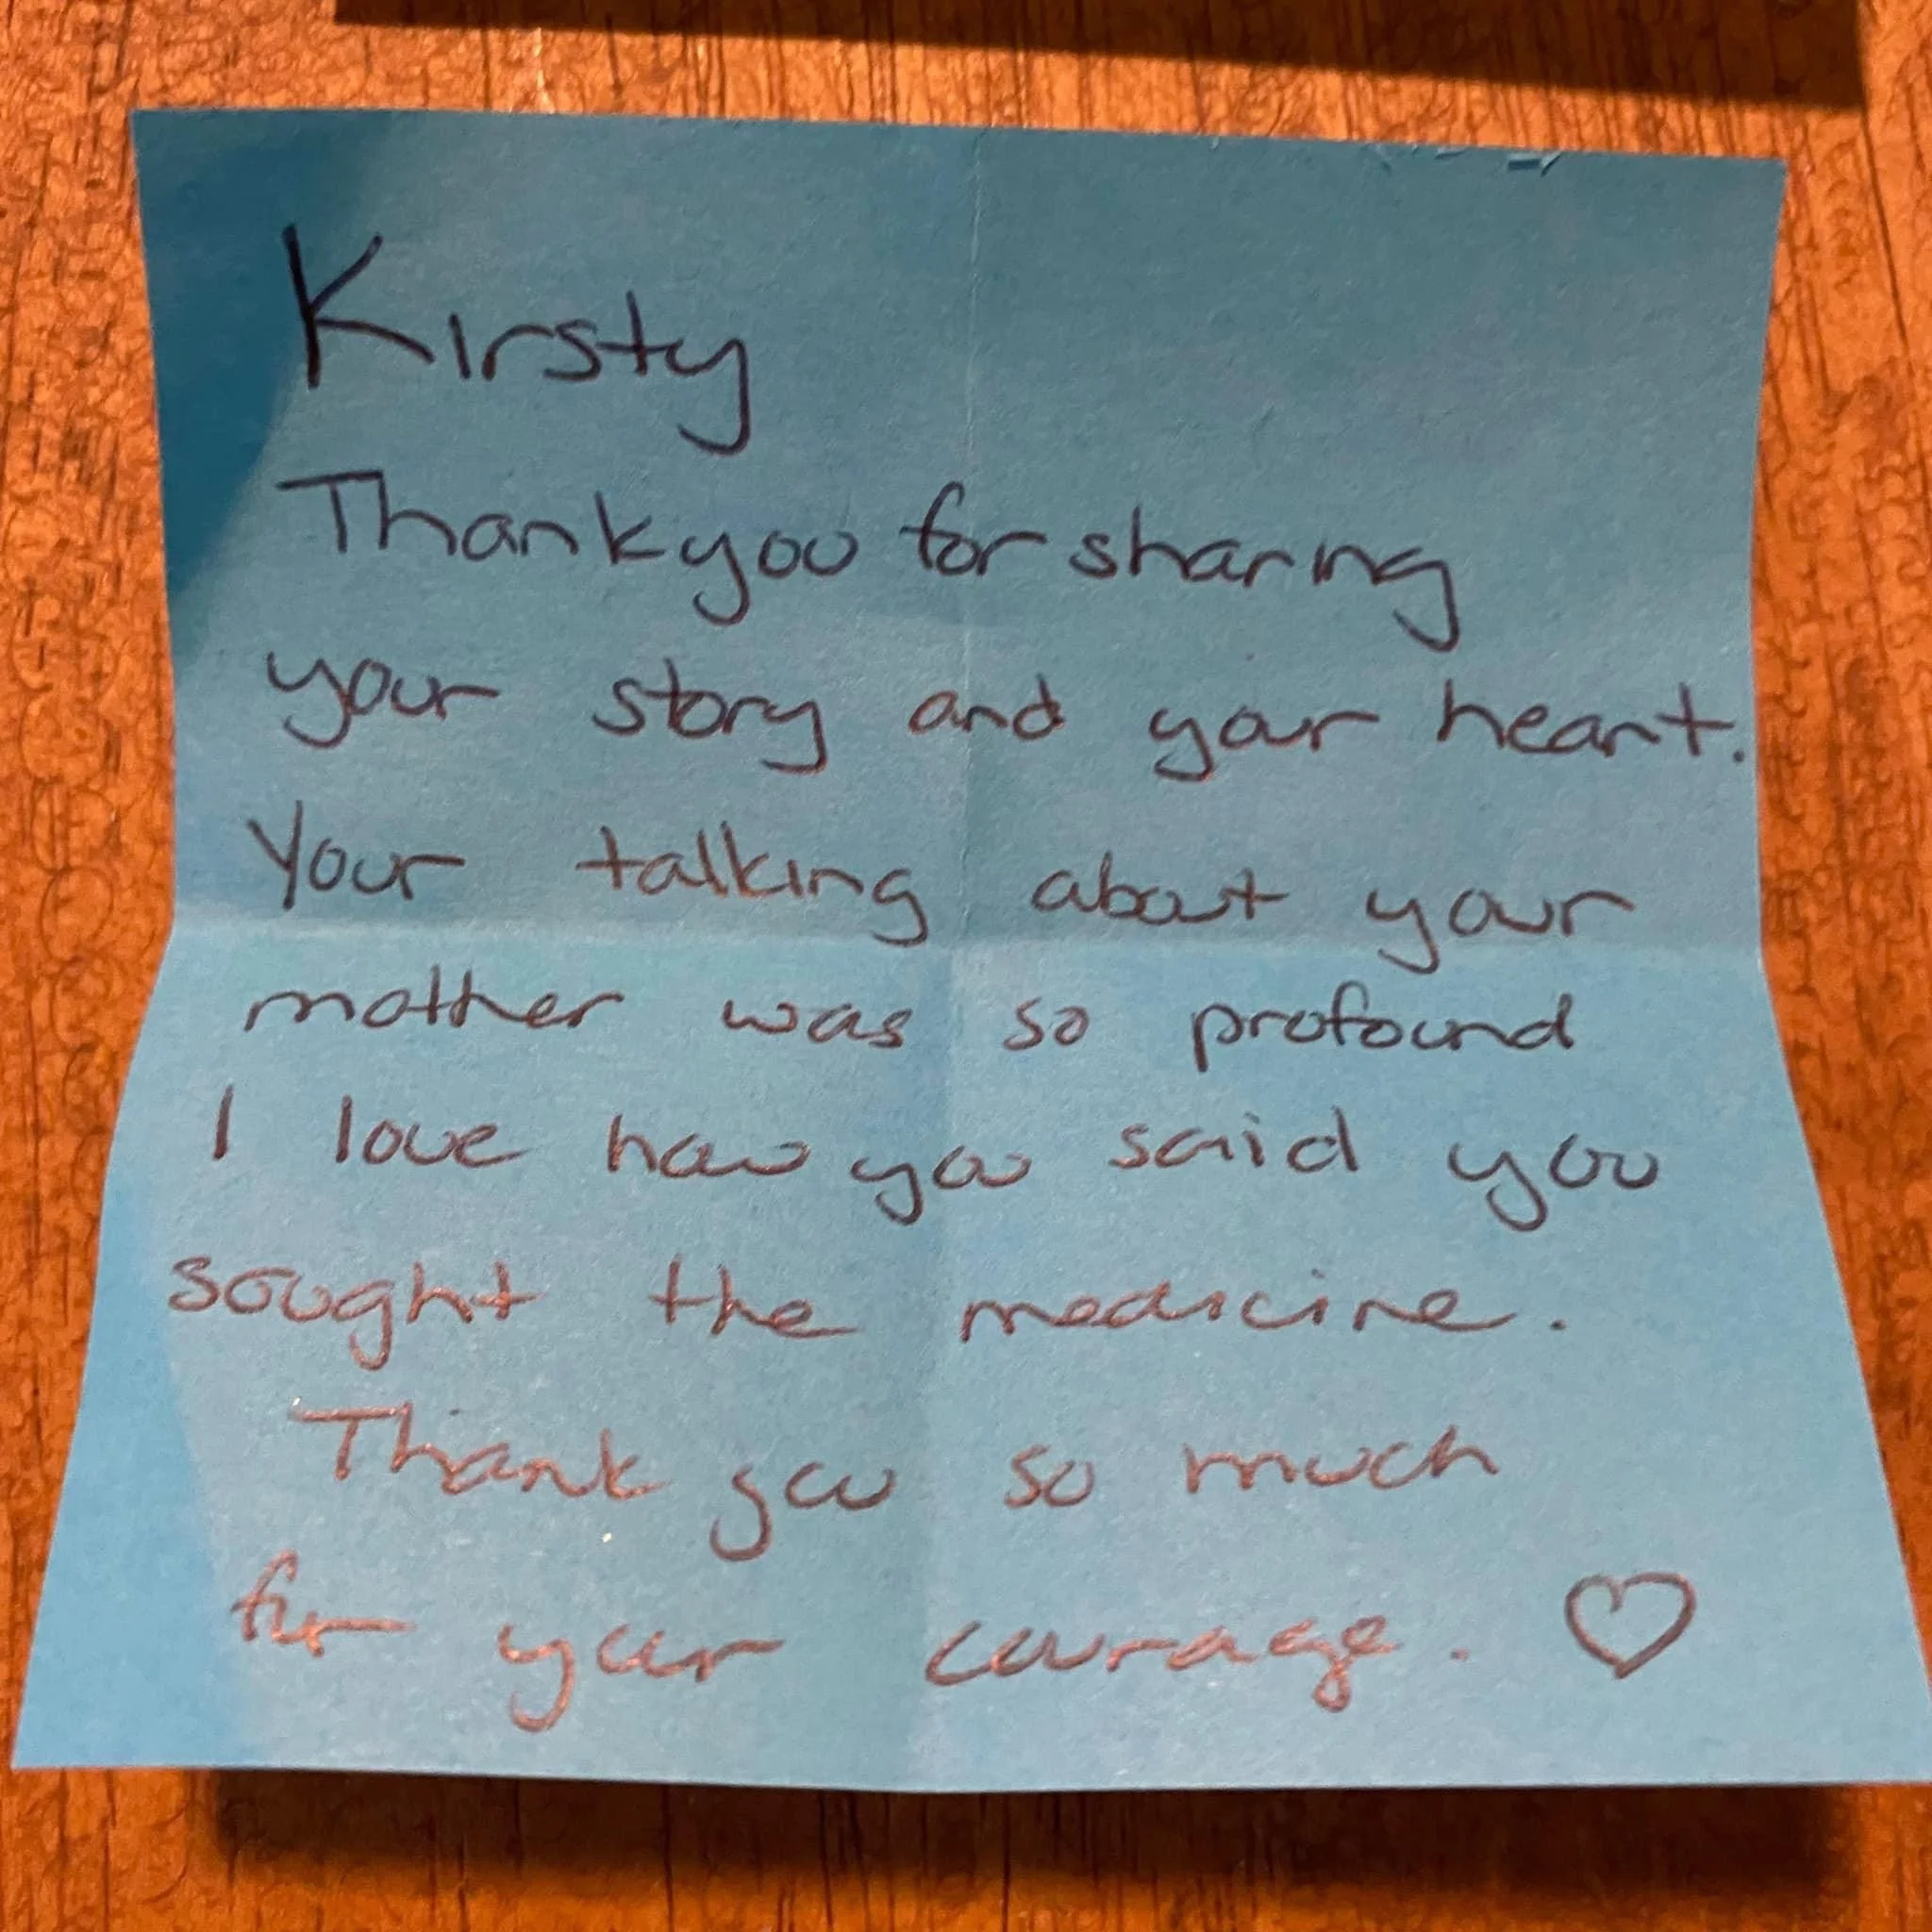 Kirsty
Thank you for sharing
your story and your heart.
Your talking about your
mother was so profound
I love how you said you
sought the medicine.
Thank you so much
for your courage. ♡